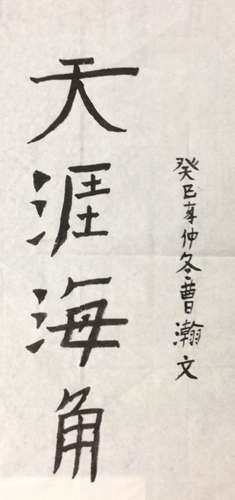 天涯海角
癸巳年仲冬曹瀚文